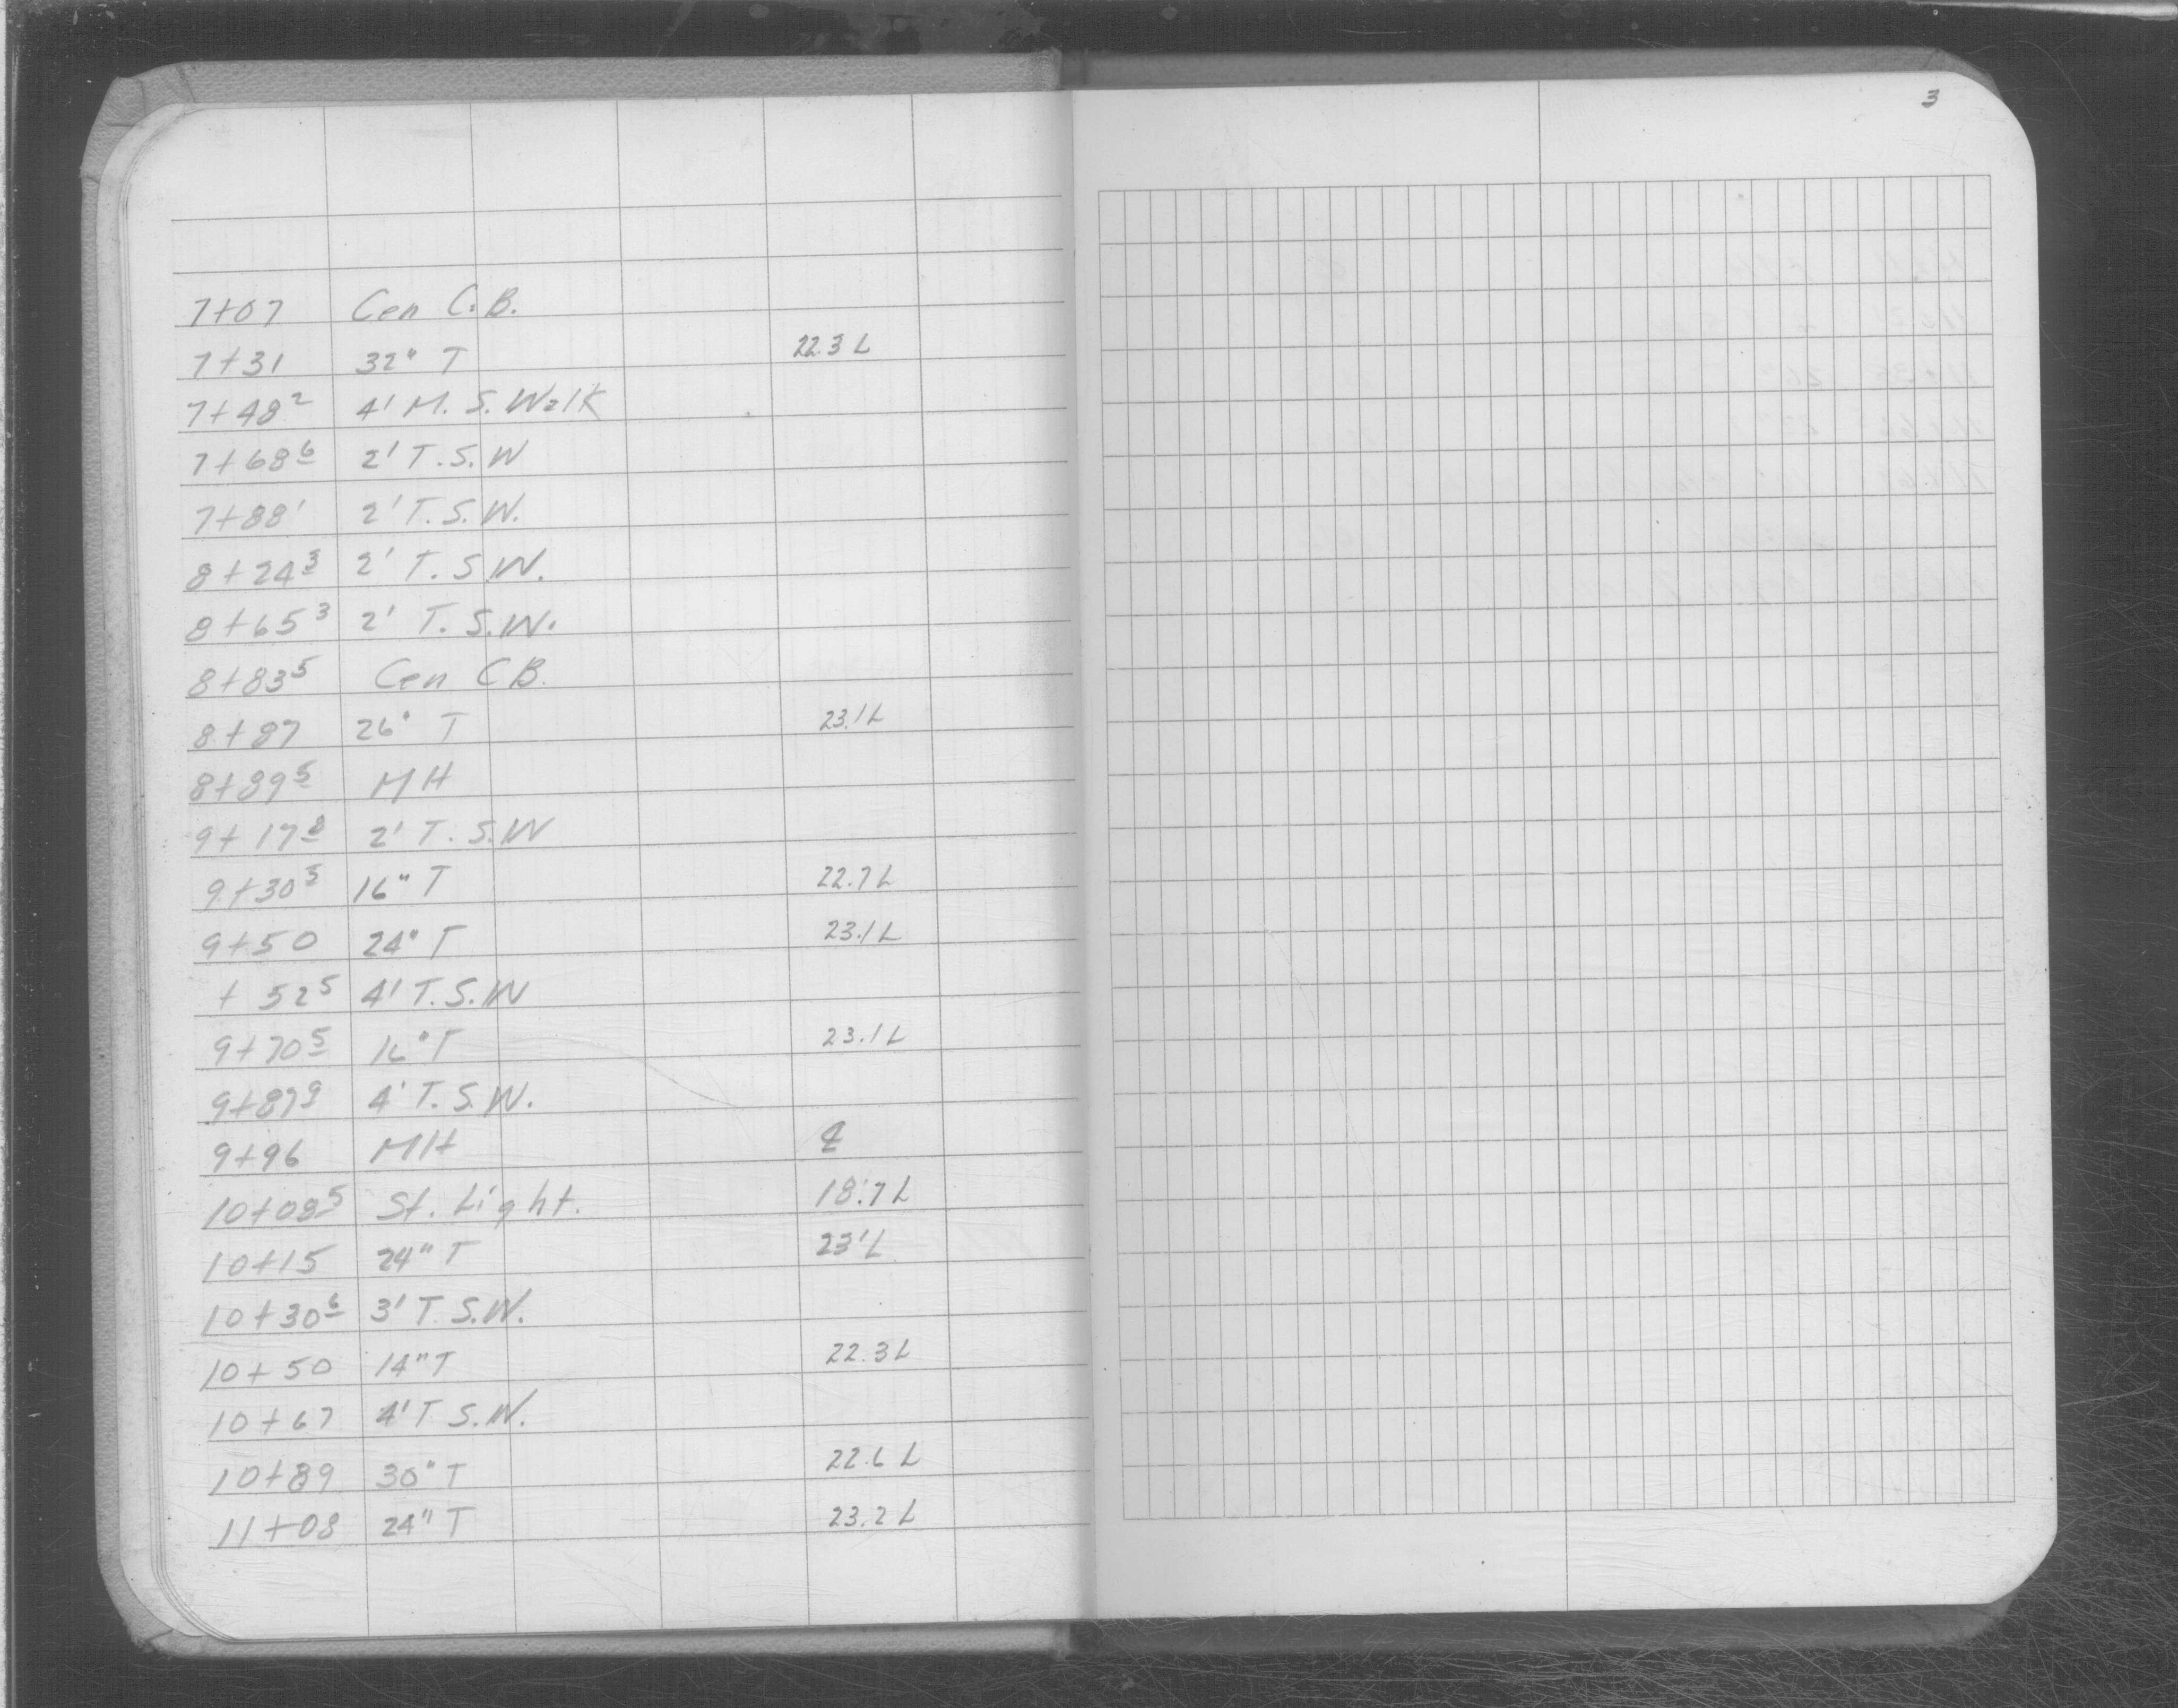 3
7+07 Cen C.B.
7+31 32" T 22.3 L
7+48² 4' M. S. Walk
7+68⁶ 2' T.S.W
7+88' 2' T.S.W.
8+24³ 2' T.S.W.
8+65³ 2' T.S.W.
8+83⁵ Cen CB.
8+87 26" T 23.1 L
8+89⁵ MH
9+17⁸ 2' T.S.W
9+30⁵ 16" T 22.7 L
9+50 24" T 23.1 L
+52⁵ 4' T.S.W
9+70⁵ 16" T 23.1 L
9+87⁹ 4' T.S.W.
9+96 MH ℄
10+08⁵ St. Light. 18.7 L
10+15 24" T 23' L
10+30⁶ 3' T.S.W.
10+50 14" T 22.3 L
10+67 4' T S.W.
10+89 30" T 22.6 L
11+08 24" T 23.2 L